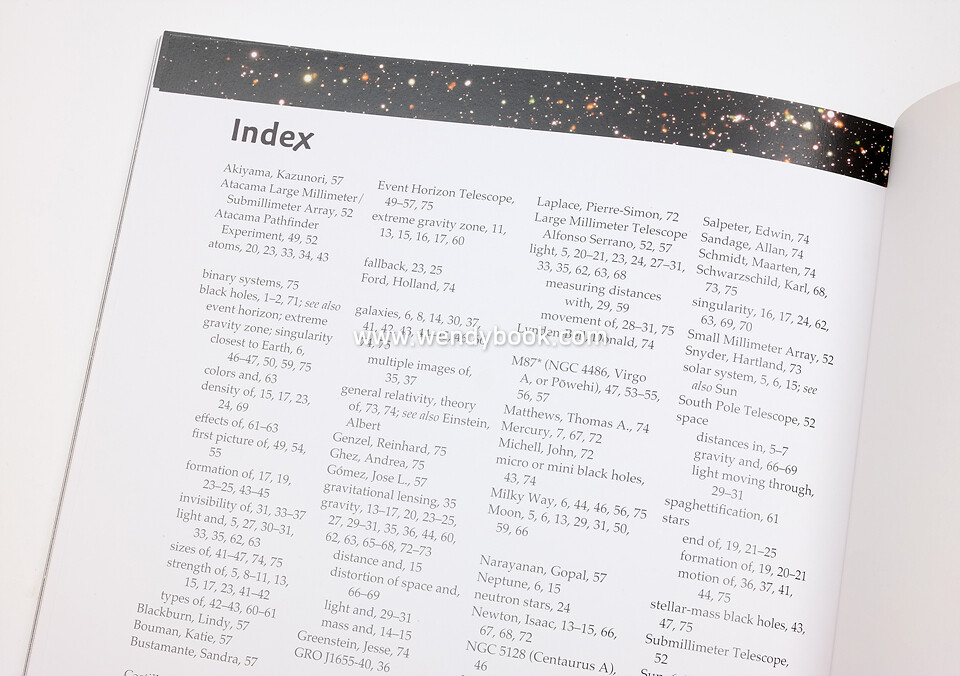 Index
Akiyama, Kazunori, 57
Atacama Large Millimeter/
Submillimeter Array, 52
Atacama Pathfinder
Experiment, 49, 52
atoms, 20, 23, 33, 34, 43
binary systems, 75
black holes, 1–2, 71; see also
event horizon; extreme
gravity zone; singularity
closest to Earth, 6,
46–47, 50, 59, 75
colors and, 63
density of, 15, 17, 23,
24, 69
effects of, 61–63
first picture of, 49, 54,
55
formation of, 17, 19,
23–25, 43–45
invisibility of, 31, 33–37
light and, 5, 27, 30–31,
33, 35, 62, 63
sizes of, 41–47, 74, 75
strength of, 5, 8–11, 13,
15, 17, 23, 41–42
types of, 42–43, 60–61
Blackburn, Lindy, 57
Bouman, Katie, 57
Bustamante, Sandra, 57
Event Horizon Telescope,
49–57, 75
extreme gravity zone, 11,
13, 15, 16, 17, 60
fallback, 23, 25
Ford, Holland, 74
galaxies, 6, 8, 14, 30, 37,
41, 42, 43,
74, 75
multiple images of,
35, 37
general relativity, theory
of, 73, 74; see also Einstein,
Albert
Genzel, Reinhard, 75
Ghez, Andrea, 75
Gómez, Jose L., 57
gravitational lensing, 35
gravity, 13–17, 20, 23–25,
27, 29–31, 35, 36, 44, 60,
62, 63, 65–68, 72–73
distance and, 15
distortion of space and,
66–69
light and, 29–31
mass and, 14–15
Greenstein, Jesse, 74
GRO J1655-40, 36
Laplace, Pierre-Simon, 72
Large Millimeter Telescope
Alfonso Serrano, 52, 57
light, 5, 20–21, 23, 24, 27–31,
33, 35, 62, 63, 68
measuring distances
with, 29, 59
movement of, 28–31, 75
Lynden-Bell, Donald, 74
M87* (NGC 4486, Virgo
A, or Pōwehi), 47, 53–55,
56, 57
Matthews, Thomas A., 74
Mercury, 7, 67, 72
Michell, John, 72
micro or mini black holes,
43, 74
Milky Way, 6, 44, 46, 56, 75
Moon, 5, 6, 13, 29, 31, 50,
59, 66
Narayanan, Gopal, 57
Neptune, 6, 15
neutron stars, 24
Newton, Isaac, 13–15, 66,
67, 68, 72
NGC 5128 (Centaurus A),
46
Salpeter, Edwin, 74
Sandage, Allan, 74
Schmidt, Maarten, 74
Schwarzschild, Karl, 68,
73, 75
singularity, 16, 17, 24, 62,
63, 69, 70
Small Millimeter Array, 52
Snyder, Hartland, 73
solar system, 5, 6, 15; see
also Sun
South Pole Telescope, 52
space
distances in, 5–7
gravity and, 66–69
light moving through,
29–31
spaghettification, 61
stars
end of, 19, 21–25
formation of, 19, 20–21
motion of, 36, 37, 41,
44, 75
stellar-mass black holes, 43,
47, 75
Submillimeter Telescope,
52
www.wendybook.com